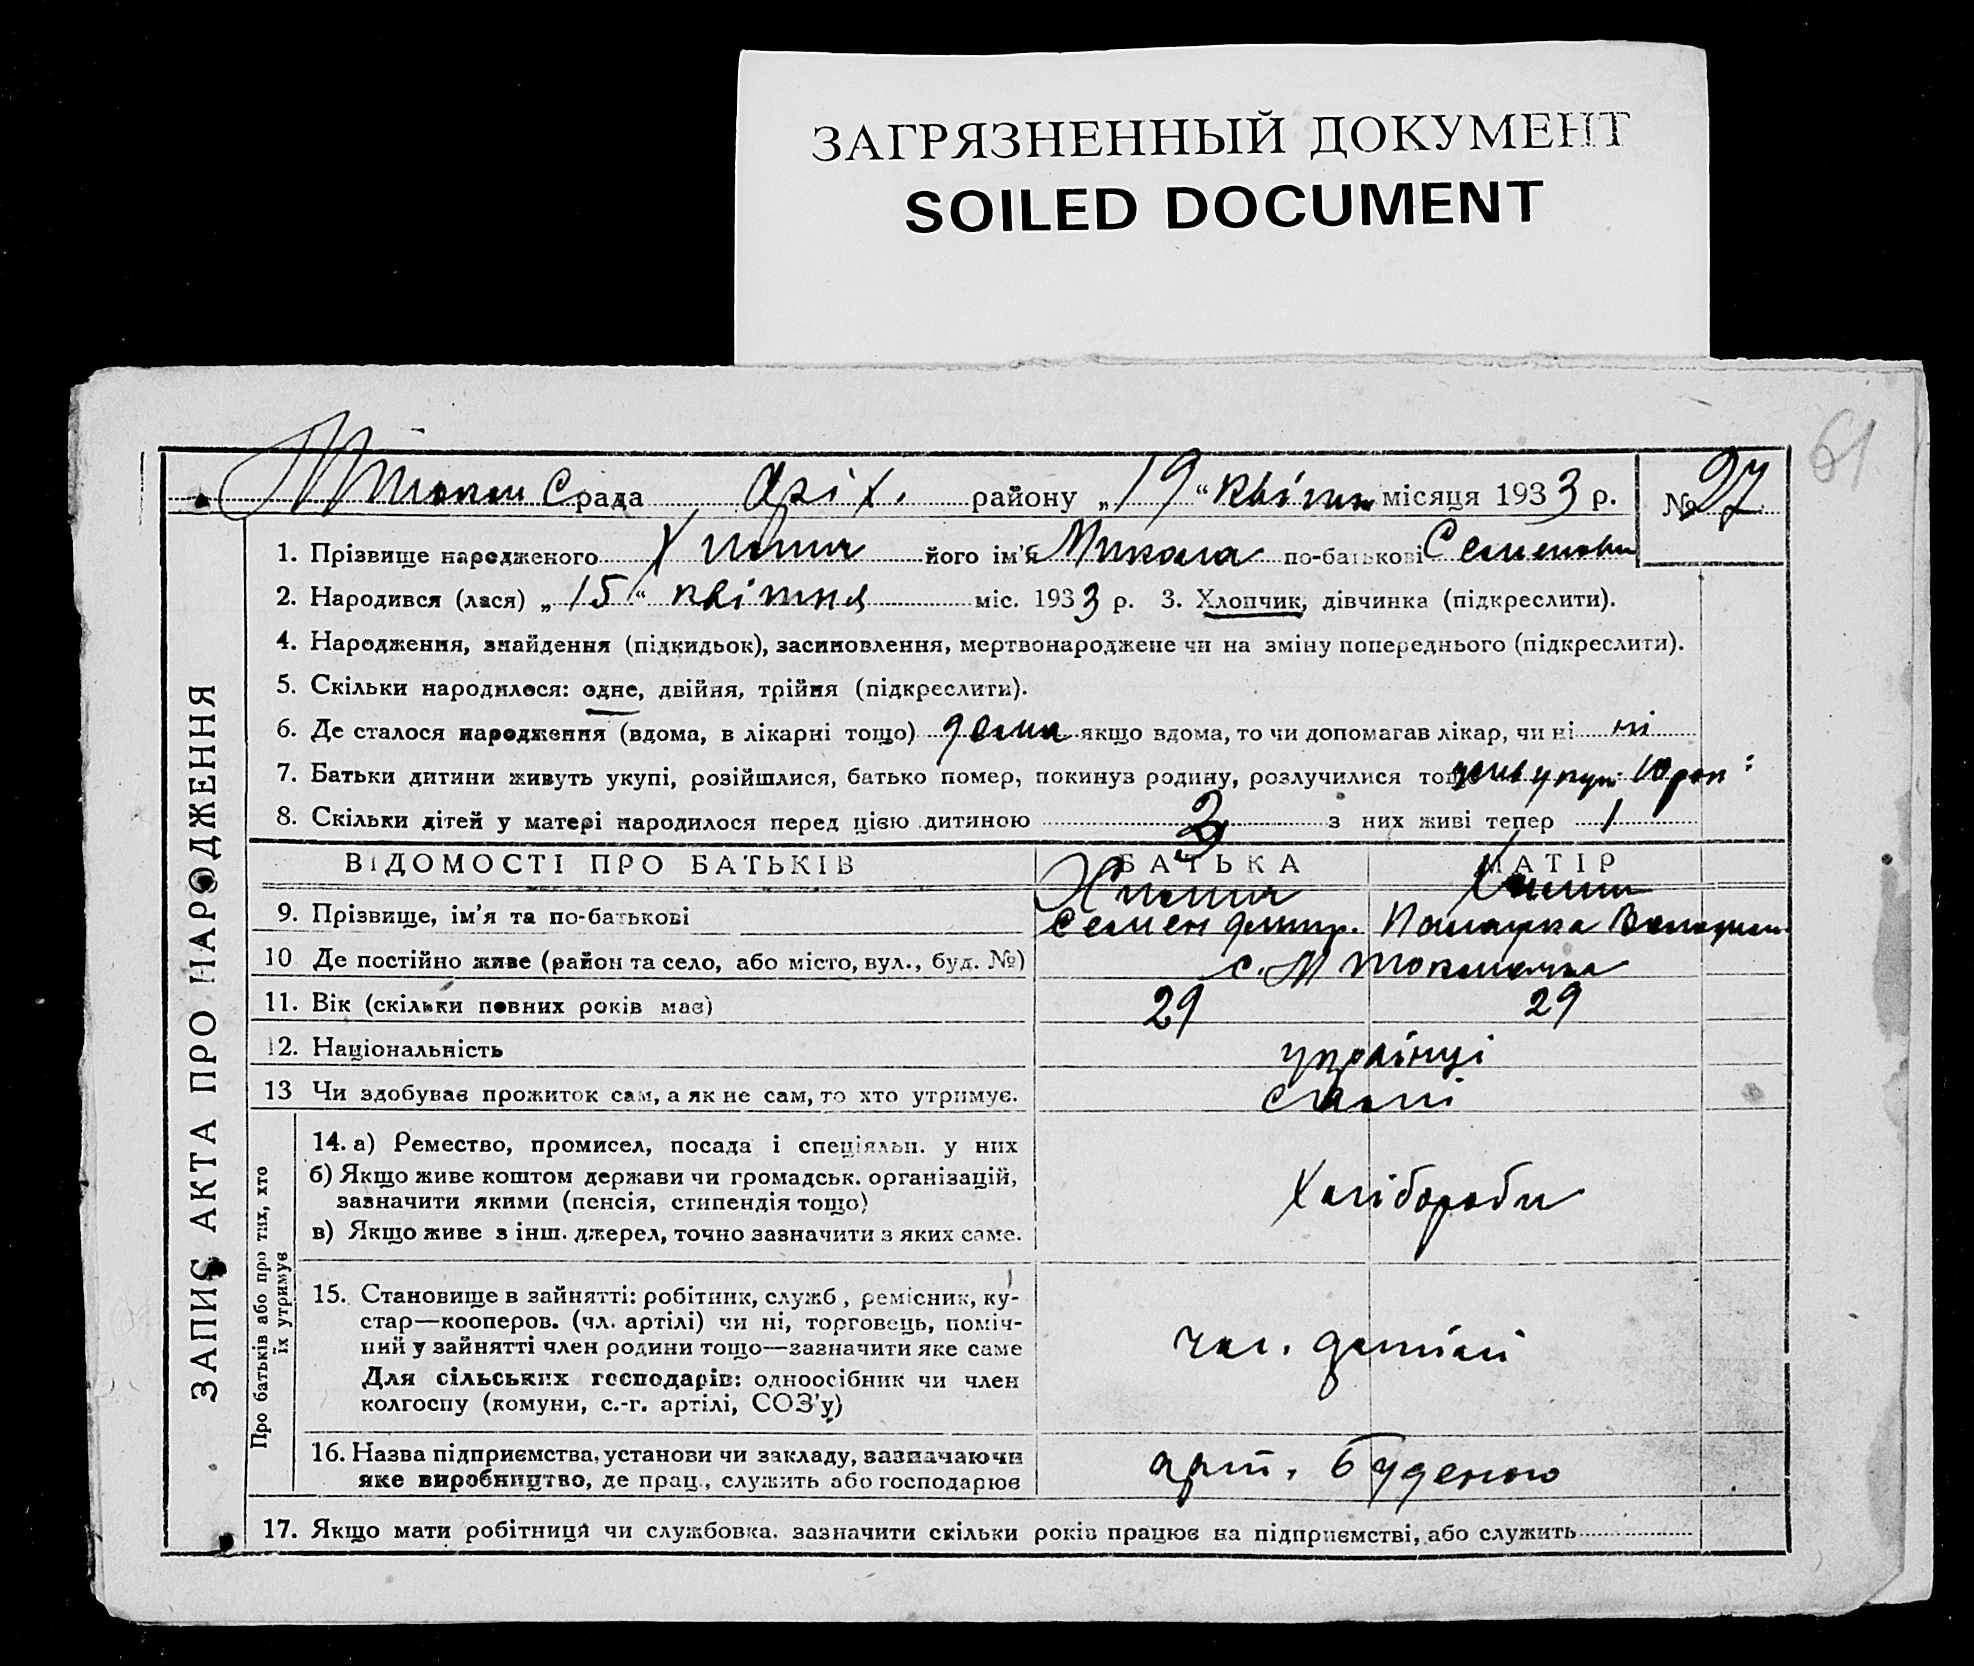 ЗАГРЯЗНЕННЫЙ ДОКУМЕНТ
SOILED DOCUMENT
61
рада Оріх. району „19“ квітня місяця 1933 р. № 27
1. Прізвище народженого його ім'я Микола по-батькові Семенови
2. Народився (лася) „15“ квітня міс. 1933 р. 3. Хлопчик, дівчинка (підкреслити).
4. Народження, знайдення (підкидьок), засиновлення, мертвонароджене чи на зміну попереднього (підкреслити).
5. Скільки народилося: одне, двійня, трійня (підкреслити).
6. Де сталося народження (вдома, в лікарні тощо) дома якщо вдома, то чи допомагав лікар, чи ні ні
7. Батьки дитини живуть укупі, розійшлися, батько помер, покинув родину, розлучилися тощо
8. Скільки дітей у матері народилося перед цією дитиною 3 з них живі тепер 1
ВІДОМОСТІ ПРО БАТЬКІВ БАТЬКА МАТІР
9. Прізвище, ім'я та по-батькові Семен Дмитр.
10 Де постійно живе (район та село, або місто, вул., буд. №) с. М Токмачка
11. Вік (скільки повних років має) 29 29
12. Національність українці
13 Чи здобуває прожиток сам, а як не сам, то хто утримує. самі
14. а) Ремество, промисел, посада і спеціяльн. у них
б) Якщо живе коштом держави чи громадськ. організацій,
зазначити якими (пенсія, стипендія тощо)
Хлібороби
в) Якщо живе з інш. джерел, точно зазначити з яких саме.
15. Становище в зайнятті: робітник, служб, ремісник, ку-
стар—кооперов. (чл. артілі) чи ні, торговець, поміч-
ний у зайнятті член родини тощо—зазначити яке саме
Для сільських господарів: одноосібник чи член
колгоспу (комуни, с.-г. артілі, СОЗ'у)
16. Назва підприємства, установи чи закладу, зазначаючи
яке виробництво, де прац., служить або господарює
арт. Буденого
17. Якщо мати робітниця чи службовка, зазначити скільки років працює на підприємстві, або служить
ЗАПИС АКТА ПРО НАРОДЖЕННЯ
Про батьків або про тих, хто
їх утримує